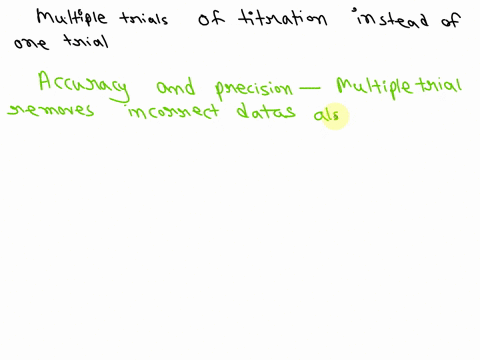 Multiple trials of titration instead of
one trial
Accuracy and precision — Multiple trial
removes incorrect datas als